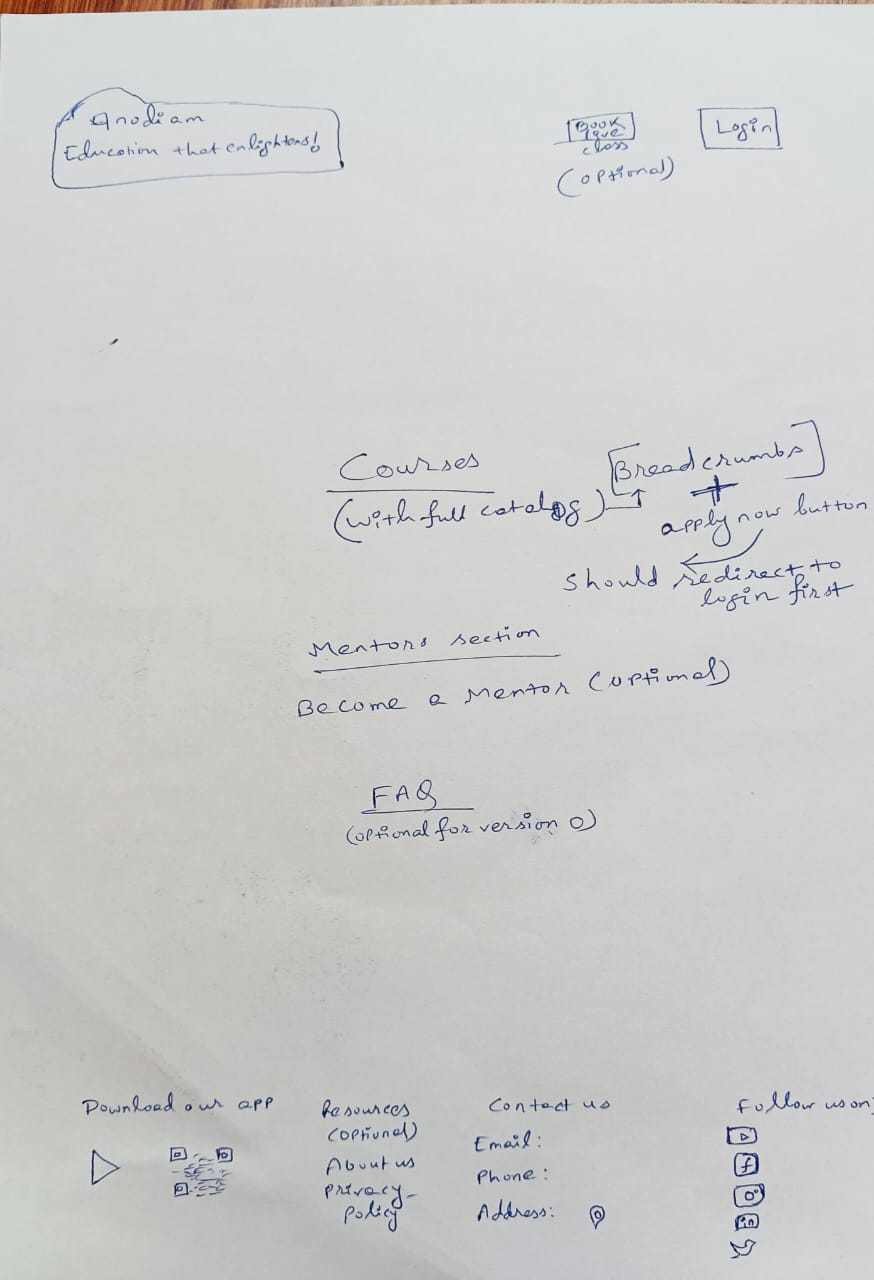 Anodiam
Education that enlightens!
Book
live
class
(optional)
Login
Courses
(with full catalog)
[Breadcrumbs]
+
apply now button
should redirect to
login first
Mentors section
Become a Mentor (optional)
FAQ
(optional for version 0)
Download our app
Resources
(optional)
About us
privacy-
policy
Contact us
Email:
Phone:
Address:
Follow us on:
f
in